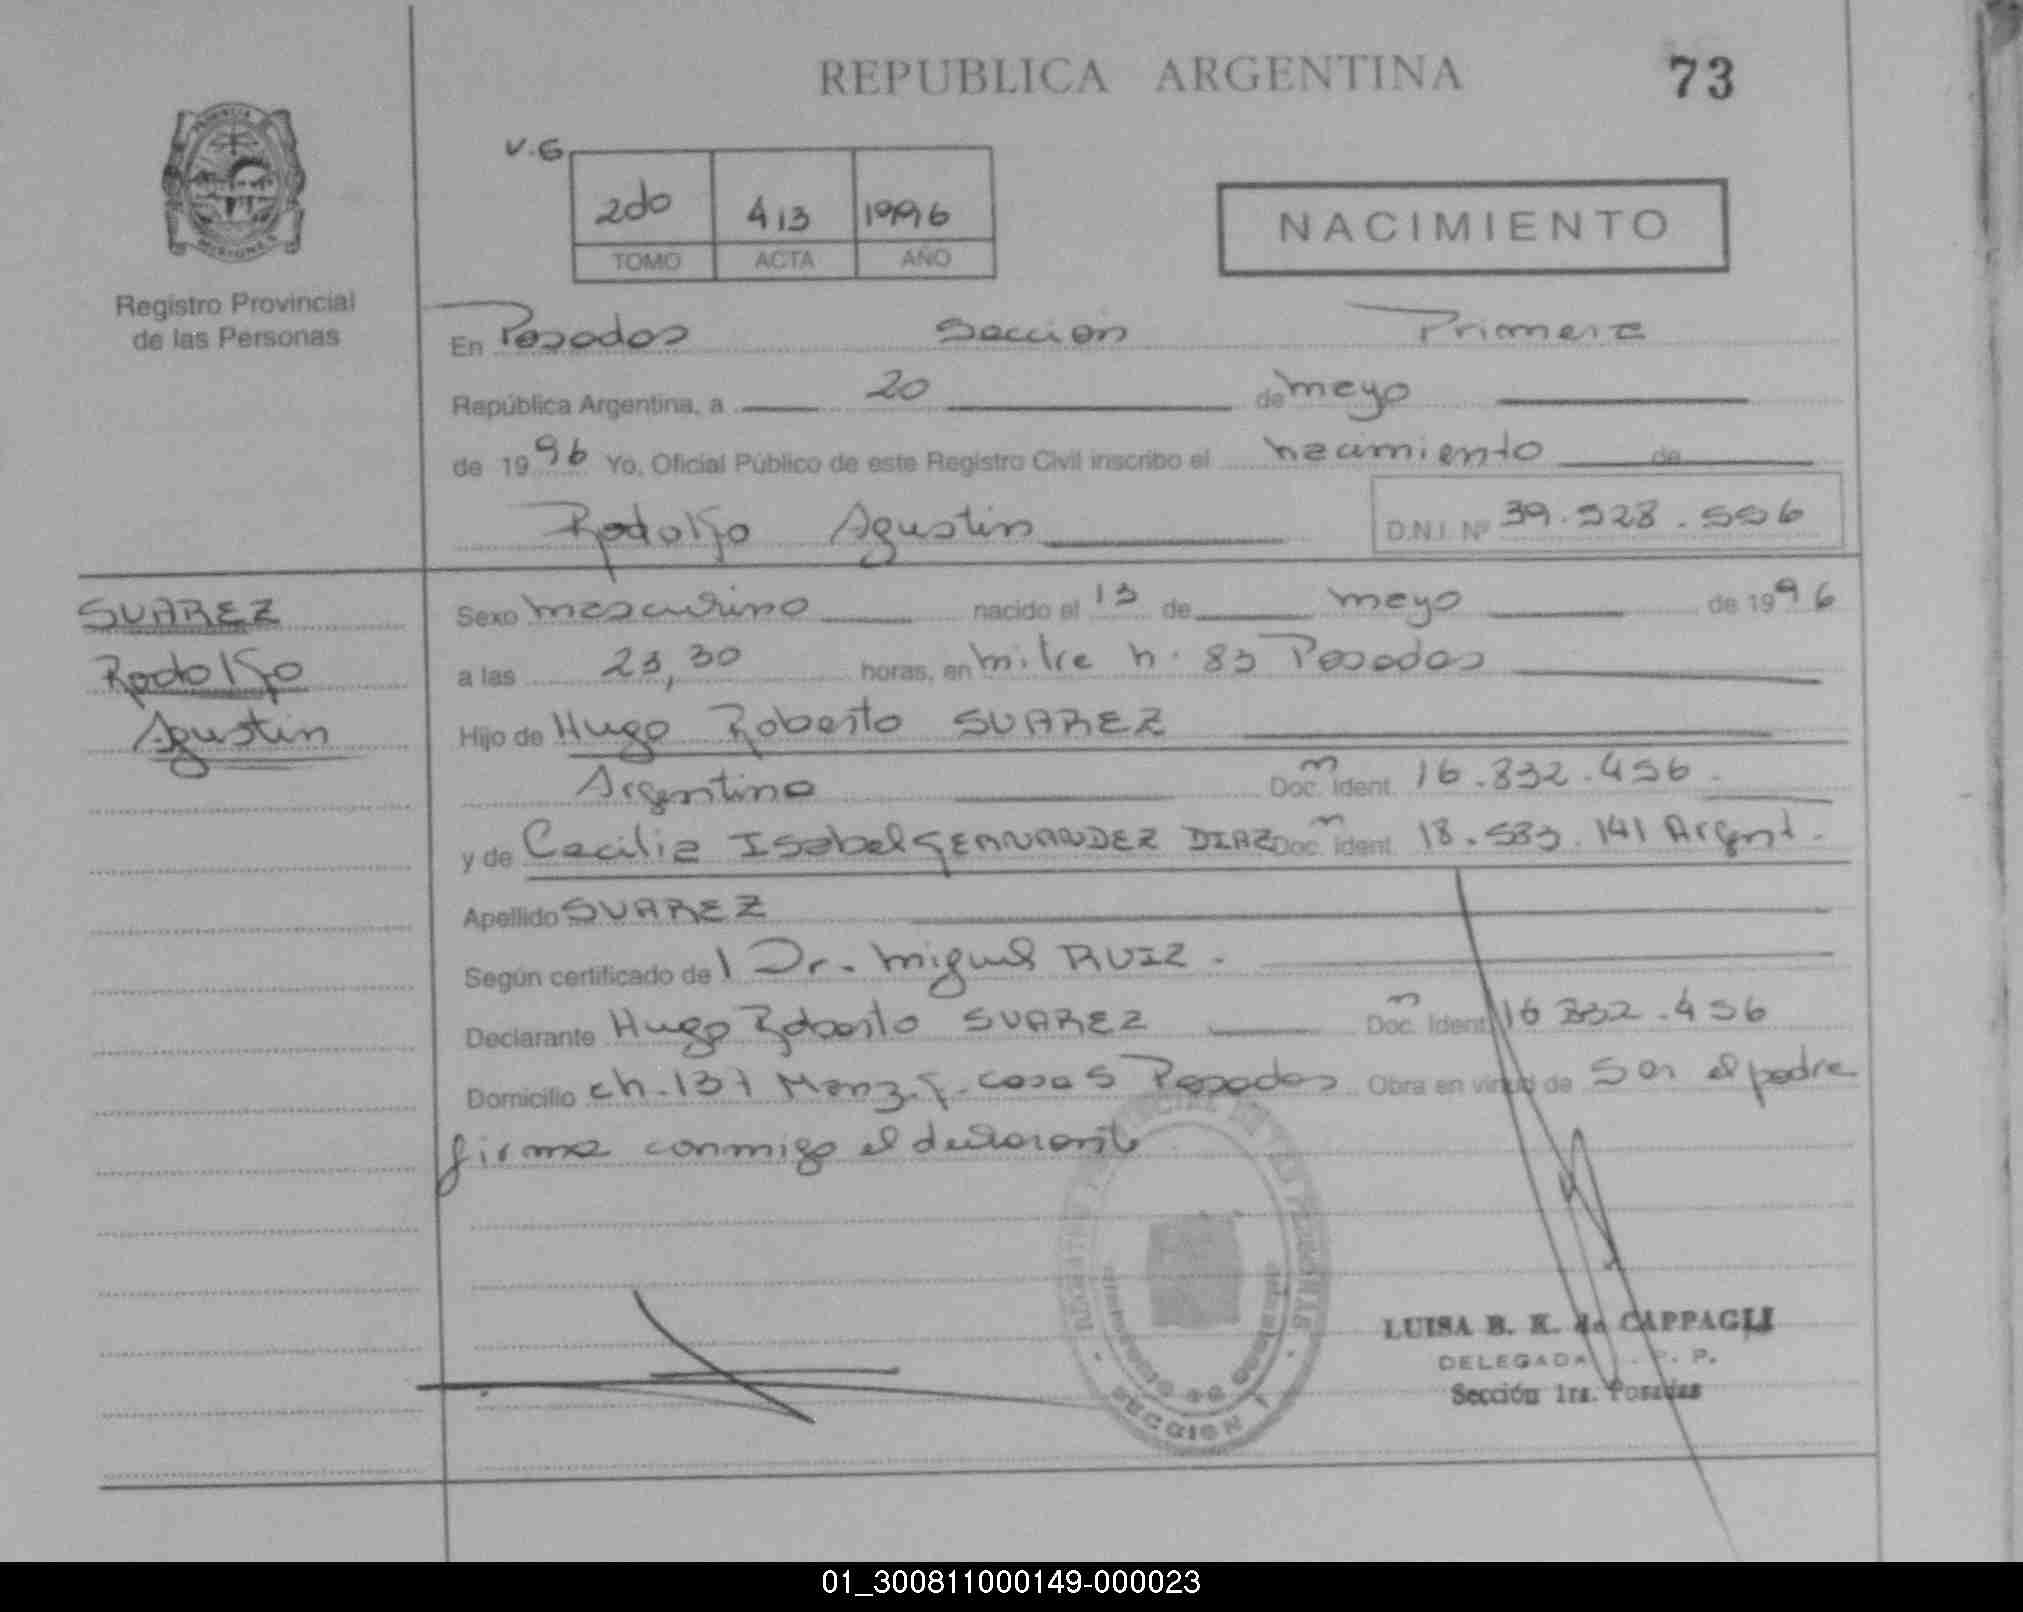 REPUBLICA ARGENTINA
73
PROVINCIA
MISIONES
Registro Provincial
de las Personas
V.G
2do 413 1996
TOMO ACTA AÑO
NACIMIENTO
En Posadas Seccion Primera
República Argentina, a 20 de mayo
de 1996 Yo, Oficial Público de este Registro Civil inscribo el nacimiento de
Rodolfo Agustin
D.N.I. Nº 39.528.556
SUAREZ
Rodolfo
Agustin
Sexo masculino nacido el 13 de mayo de 1996
a las 23,30 horas, en mitre n. 83 Posadas
Hijo de Hugo Roberto SUAREZ
Argentino Doc. m ident. 16.832.456.
y de Cecilia Isabel FERNANDEZ DIAZ Doc. m ident. 18.583.141 Argent.
Apellido SUAREZ
Según certificado del Dr. Miguel RUIZ.
Declarante Hugo Roberto SUAREZ Doc. m Ident. 16 832.456
Domicilio ch. 131 Manz. F. casa 5 Posadas Obra en virtud de ser el padre
firma conmigo el declarante
SECCION 1
LUISA B. K. de CAPPAGLI
DELEGADA R. P. P.
Sección 1ra. Posadas
01_300811000149-000023